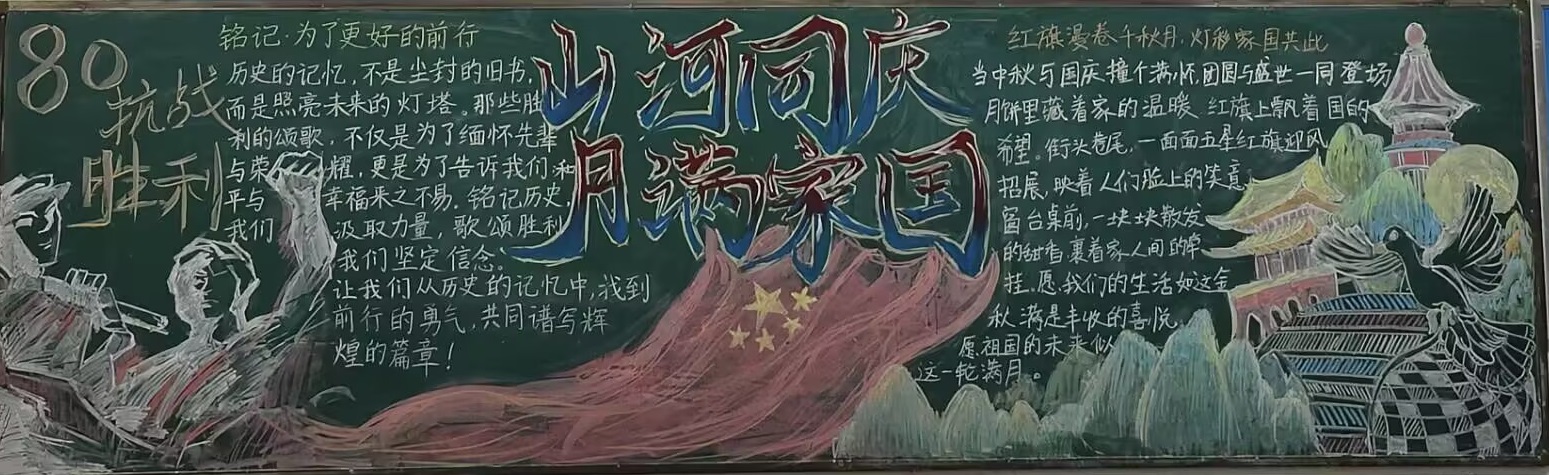 80
抗战
胜利
铭记·为了更好的前行
历史的记忆,不是尘封的旧书,
而是照亮未来的灯塔。那些胜
利的颂歌,不仅是为了缅怀先辈
与荣耀,更是为了告诉我们:和
平与幸福来之不易。铭记历史,
我们汲取力量,歌颂胜利
我们坚定信念。
让我们从历史的记忆中,找到
前行的勇气,共同谱写辉
煌的篇章!
山河同庆
月满家国
红旗漫卷千秋月,灯秒家国共此
当中秋与国庆撞个满怀,团圆与盛世一同登场
月饼里藏着家的温暖,红旗上飘着国的
希望。街头巷尾,一面面五星红旗迎风
招展,映着人们脸上的笑意
窗台桌前,一块块散发
的甜香裹着家人间的牵
挂.愿我们的生活如这金
秋满是丰收的喜悦,
愿祖国的未来似
这一轮满月。